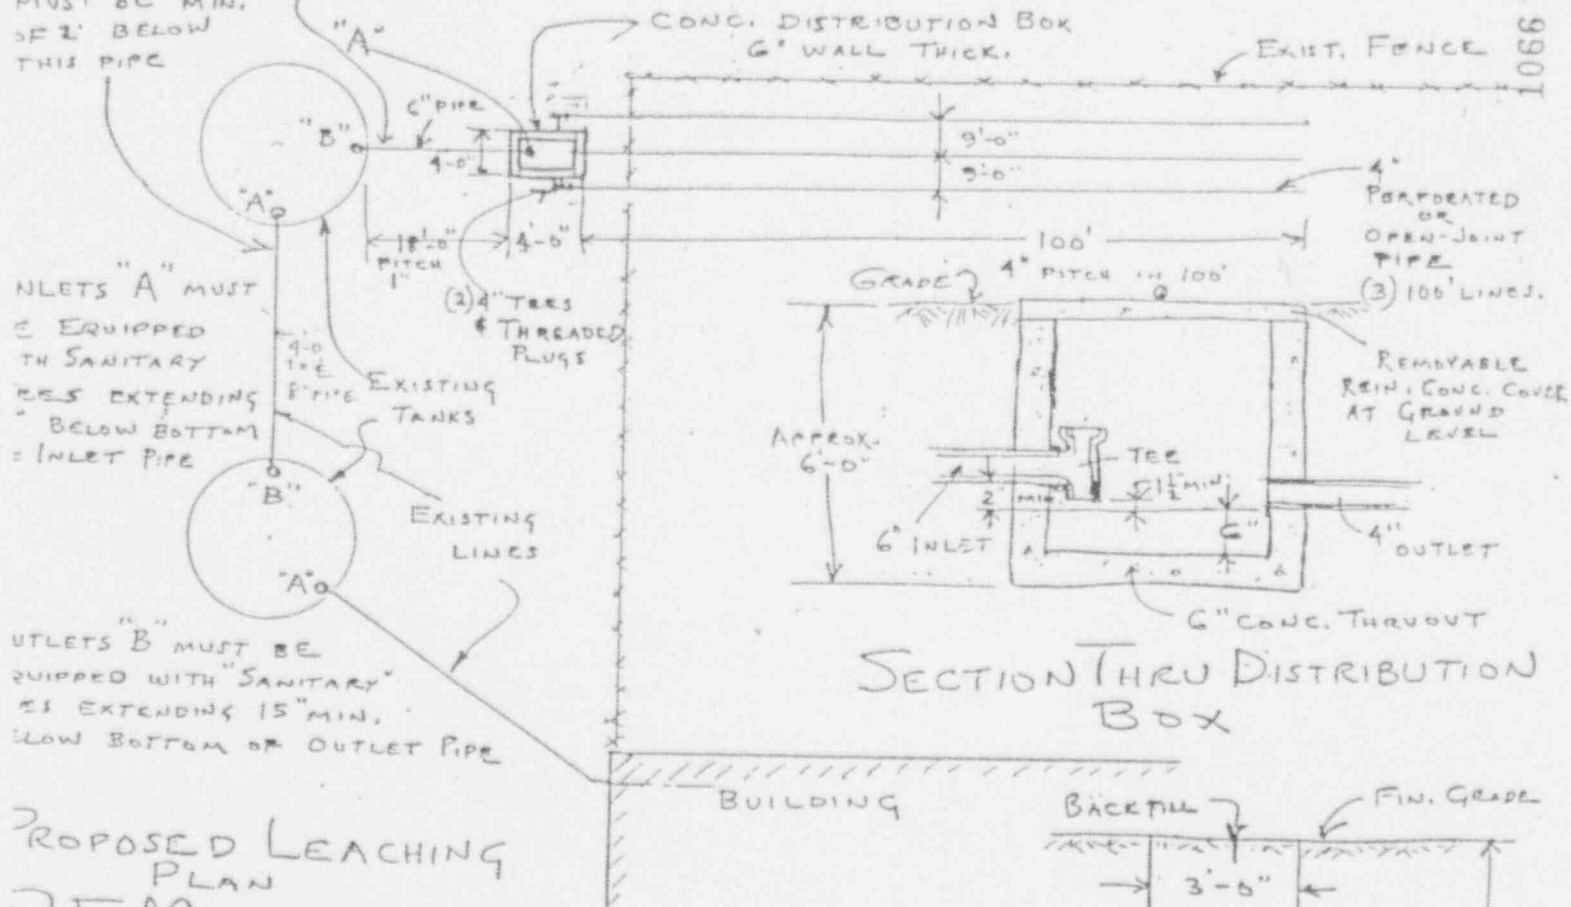 MUST BE MIN.
OF 2' BELOW
THIS PIPE
"A"
CONC. DISTRIBUTION BOX
6" WALL THICK.
EXIST. FENCE
1066
6" PIPE
"B"
4'-0"
9'-0"
9'-0"
"A"
18'-0"
PITCH
1"
4'-0"
100'
4" PITCH IN 100'
4"
PERFORATED
OR
OPEN-JOINT
PIPE
(3) 100' LINES.
(2) 4" TEES
& THREADED
PLUGS
NLETS "A" MUST
E EQUIPPED
TH SANITARY
EES EXTENDING
" BELOW BOTTOM
= INLET PIPE
8" PIPE
EXISTING
TANKS
"B"
EXISTING
LINES
"A"
UTLETS "B" MUST BE
QUIPPED WITH "SANITARY"
ES EXTENDING 15" MIN.
ELOW BOTTOM OF OUTLET PIPE
GRADE
REMOVABLE
REIN. CONC. COVER
AT GROUND
LEVEL
APPROX.
6'-0"
TEE
1½" MIN.
2" MIN
6"
6" INLET
4"
OUTLET
6" CONC. THRUOUT
SECTION THRU DISTRIBUTION
BOX
BUILDING
BACKFILL
FIN. GRADE
3'-0"
PROPOSED LEACHING
PLAN